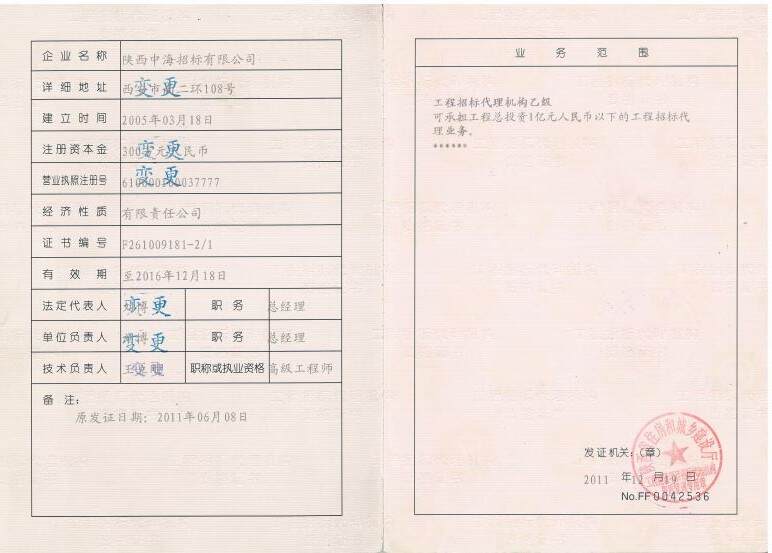 企业名称 陕西中海招标有限公司
详细地址 西 市 二环108号 变更
建立时间 2005年03月18日
注册资本金 300 元 民币 变更
营业执照注册号 610000100037777 变更
经济性质 有限责任公司
证书编号 F261009181-2/1
有效期 至2016年12月18日
法定代表人 博 变更 职务 总经理
单位负责人 博 变更 职务 总经理
技术负责人 王 变更 职称或执业资格 高级工程师
备注:
原发证日期: 2011年06月08日
业务范围
工程招标代理机构乙级
可承担工程总投资1亿元人民币以下的工程招标代
理业务。
******
发证机关:(章)
陕西省住房和城乡建设厅
2011 年 12 月 19 日
No.FF0042536